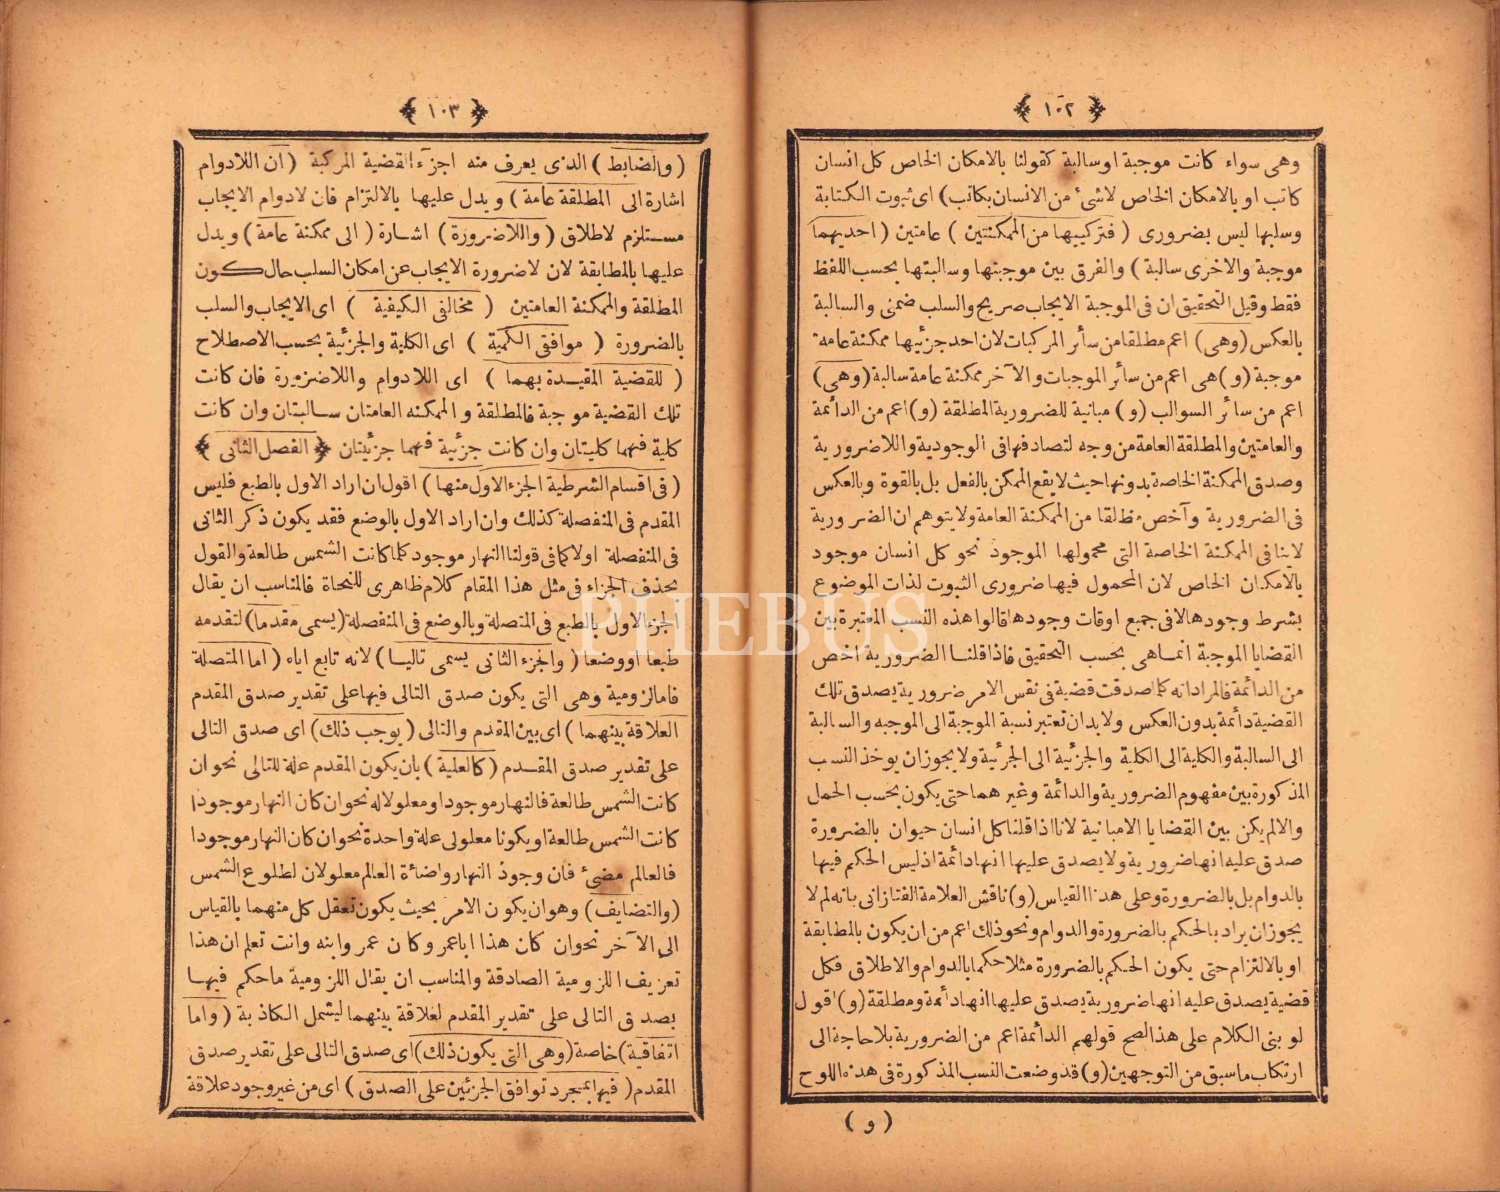 ﴿ ١٠٢ ﴾
وهى سواء كانت موجبة اوسالبة كقولنا بالامكان الخاص كل انسان
كاتب او بالامكان الخاص لاشئ من الانسان بكاتب) اى ثبوت الكتابة
وسلبها ليس بضرورى ( فتركيبها من الممكنتين ) عامتين ( احديهما
موجبة والاخرى سالبة ) والفرق بين موجبتها وسالبتها بحسب اللفظ
فقط وقيل التحقيق ان فى الموجبة الايجاب صريح والسلب ضمنى والسالبة
بالعكس (وهى) اعم مطلقا من سائر المركبات لان احد جزئيها ممكنة عامة
موجبة (و) هى اعم من سائر الموجبات والآخر ممكنة عامة سالبة (وهى)
اعم من سائر السوالب (و) مباينة للضرورية المطلقة (و) اعم من الدائمة
والعامتين والمطلقة العامة من وجه لتصادقها فى الوجودية واللاضرورية
وصدق الممكنة الخاصة بدونها حيث لايقع الممكن بالفعل بل بالقوة وبالعكس
فى الضرورية وآخص مطلقا من الممكنة العامة ولايتوهم ان الضرورية
لاينافى الممكنة الخاصة التى محمولها الموجود نحو كل انسان موجود
بالامكان الخاص لان المحمول فيها ضرورى الثبوت لذات الموضوع
بشرط وجودها لافى جميع اوقات وجودها قالوا هذه النسب المعتبرة بين
القضايا الموجبة انماهى بحسب التحقيق فاذا قلنا الضرورية اخص
من الدائمة فالمراد انه كلما صدقت قضية فى نفس الامر ضرورية يصدق تلك
القضية دائمة بدون العكس ولابد ان تعتبر نسبة الموجبة الى الموجبه والسالبة
الى السالبة والكلية الى الكلية والجزئية الى الجزئية ولايجوز ان يوخذ النسب
المذكورة بين مفهوم الضرورية والدائمة وغيرهما حتى يكون بحسب الحمل
والالم يكن بين القضايا الامباينة لانا اذا قلنا كل انسان حيوان بالضرورة
صدق عليه انها ضرورية ولايصدق عليها انها دائمة اذ ليس الحكم فيها
بالدوام بل بالضرورة وعلى هذا القياس (و) ناقش العلامة الفتازانى بانه لم لا
يجوز ان يراد بالحكم بالضرورة والدوام ونحو ذلك اعم من ان يكون بالمطابقة
او بالالتزام حتى يكون الحكم بالضرورة مثلا حكما بالدوام والاطلاق فكل
قضية يصدق عليه انها ضرورية يصدق عليها انها دائمة ومطلقة (و) اقول
لو بنى الكلام على هذا لصح قولهم الدائمة اعم من الضرورية بلا حاجة الى
ارتكاب ماسبق من التوجهين (و) قد وضعت النسب المذكورة فى هذه اللوح
( و )
﴿ ١٠٣ ﴾
(والضابط) الذى يعرف منه اجزآء القضية المركبة (ان اللادوام
اشارة الى المطلقة عامة) ويدل عليها بالالتزام فان لادوام الايجاب
مستلزم لاطلاق (واللاضرورة) اشارة (الى ممكنة عامة) ويدل
عليها بالمطابقة لان لاضرورة الايجاب عن امكان السلب حال كون
المطلقة والممكنة العامتين ( مخالفى الكيفية ) اى الايجاب والسلب
بالضرورة ( موافقى الكمية ) اى الكلية والجزئية بحسب الاصطلاح
( للقضية المقيدة بهما ) اى اللادوام واللاضرورة فان كانت
تلك القضية موجبة فالمطلقة والممكنه العامتان سالبتان وان كانت
كلية فهما كليتان وان كانت جزئية فهما جزئيتان ﴿ الفصل الثانى ﴾
(فى اقسام الشرطية الجزء الاول منها) اقول ان اراد الاول بالطبع فليس
المقدم فى المنفصلة كذلك وان اراد الاول بالوضع فقد يكون ذكر الثانى
فى المنفصلة اولا كما فى قولنا النهار موجود كلما كانت الشمس طالعة والقول
بحذف الجزاء فى مثل هذا المقام كلام ظاهرى للنحاة فالمناسب ان يقال
الجزء الاول بالطبع فى المتصلة وبالوضع فى المنفصلة (يسمى مقدما) لتقدمه
طبعا او وضعا ( والجزء الثانى يسمى تاليا) لانه تابع اياه (اما المتصلة
فاما لزومية وهى التى يكون صدق التالى فيها على تقدير صدق المقدم
العلاقة بينهما ) اى بين المقدم والتالى (يوجب ذلك) اى صدق التالى
على تقدير صدق المقدم (كالعلية) بان يكون المقدم علة للتالى نحو ان
كانت الشمس طالعة فالنهار موجود او معلولا له نحو ان كان النهار موجودا
كانت الشمس طالعة او يكونا معلولى علة واحدة نحو ان كان النهار موجودا
فالعالم مضئ فان وجود النهار واضائة العالم معلولان لطلوع الشمس
(والتضايف) وهو ان يكون الامر بحيث يكون تعقل كل منهما بالقياس
الى الآخر نحو ان كان هذا اباعمرو كان عمر وابنه وانت تعلم ان هذا
تعزيف اللزومية الصادقة والمناسب ان يقال اللزومية ماحكم فيها
بصدق التالى على تقدير المقدم لعلاقة بينهما ليشمل الكاذبة (واما
اتفاقية) خاصة (وهى التى يكون ذلك) اى صدق التالى على تقدير صدق
المقدم (فيها بمجرد توافق الجزئين على الصدق) اى من غير وجود علاقة
PHEBUS